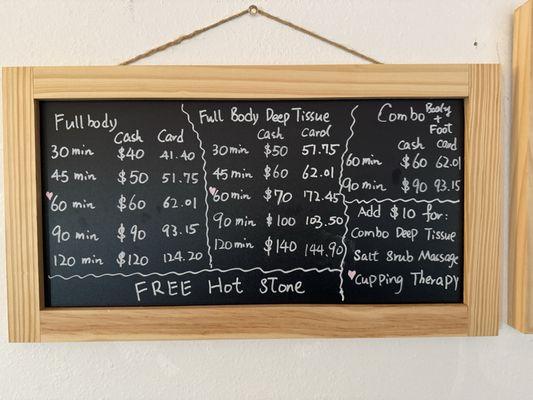 Full body
Cash Card
30 min $40 41.40
45 min $50 51.75
60 min $60 62.01
90 min $90 93.15
120 min $120 124.20
Full Body Deep Tissue
Cash Card
30 min $50 51.75
45 min $60 62.01
60 min $70 72.45
90 min $100 103.50
120 min $140 144.90
Combo Body + Foot
Cash Card
60 min $60 62.01
90 min $90 93.15
Add $10 for:
Combo Deep Tissue
Salt Srub Massage
Cupping Therapy
FREE Hot STone